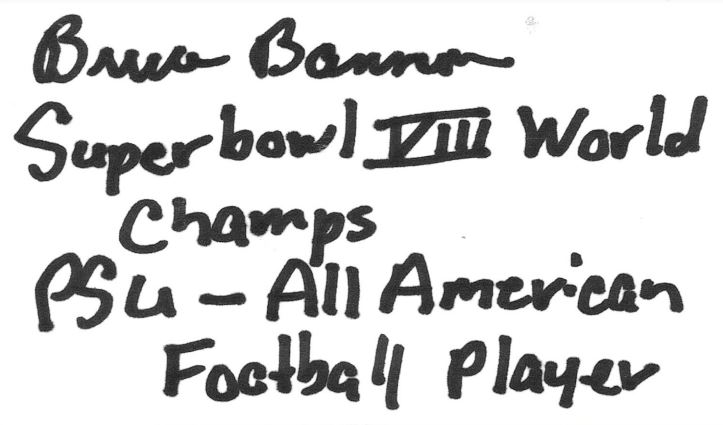 Bruce Bannon
Superbowl VIII World
Champs
PSU - All American
Football Player